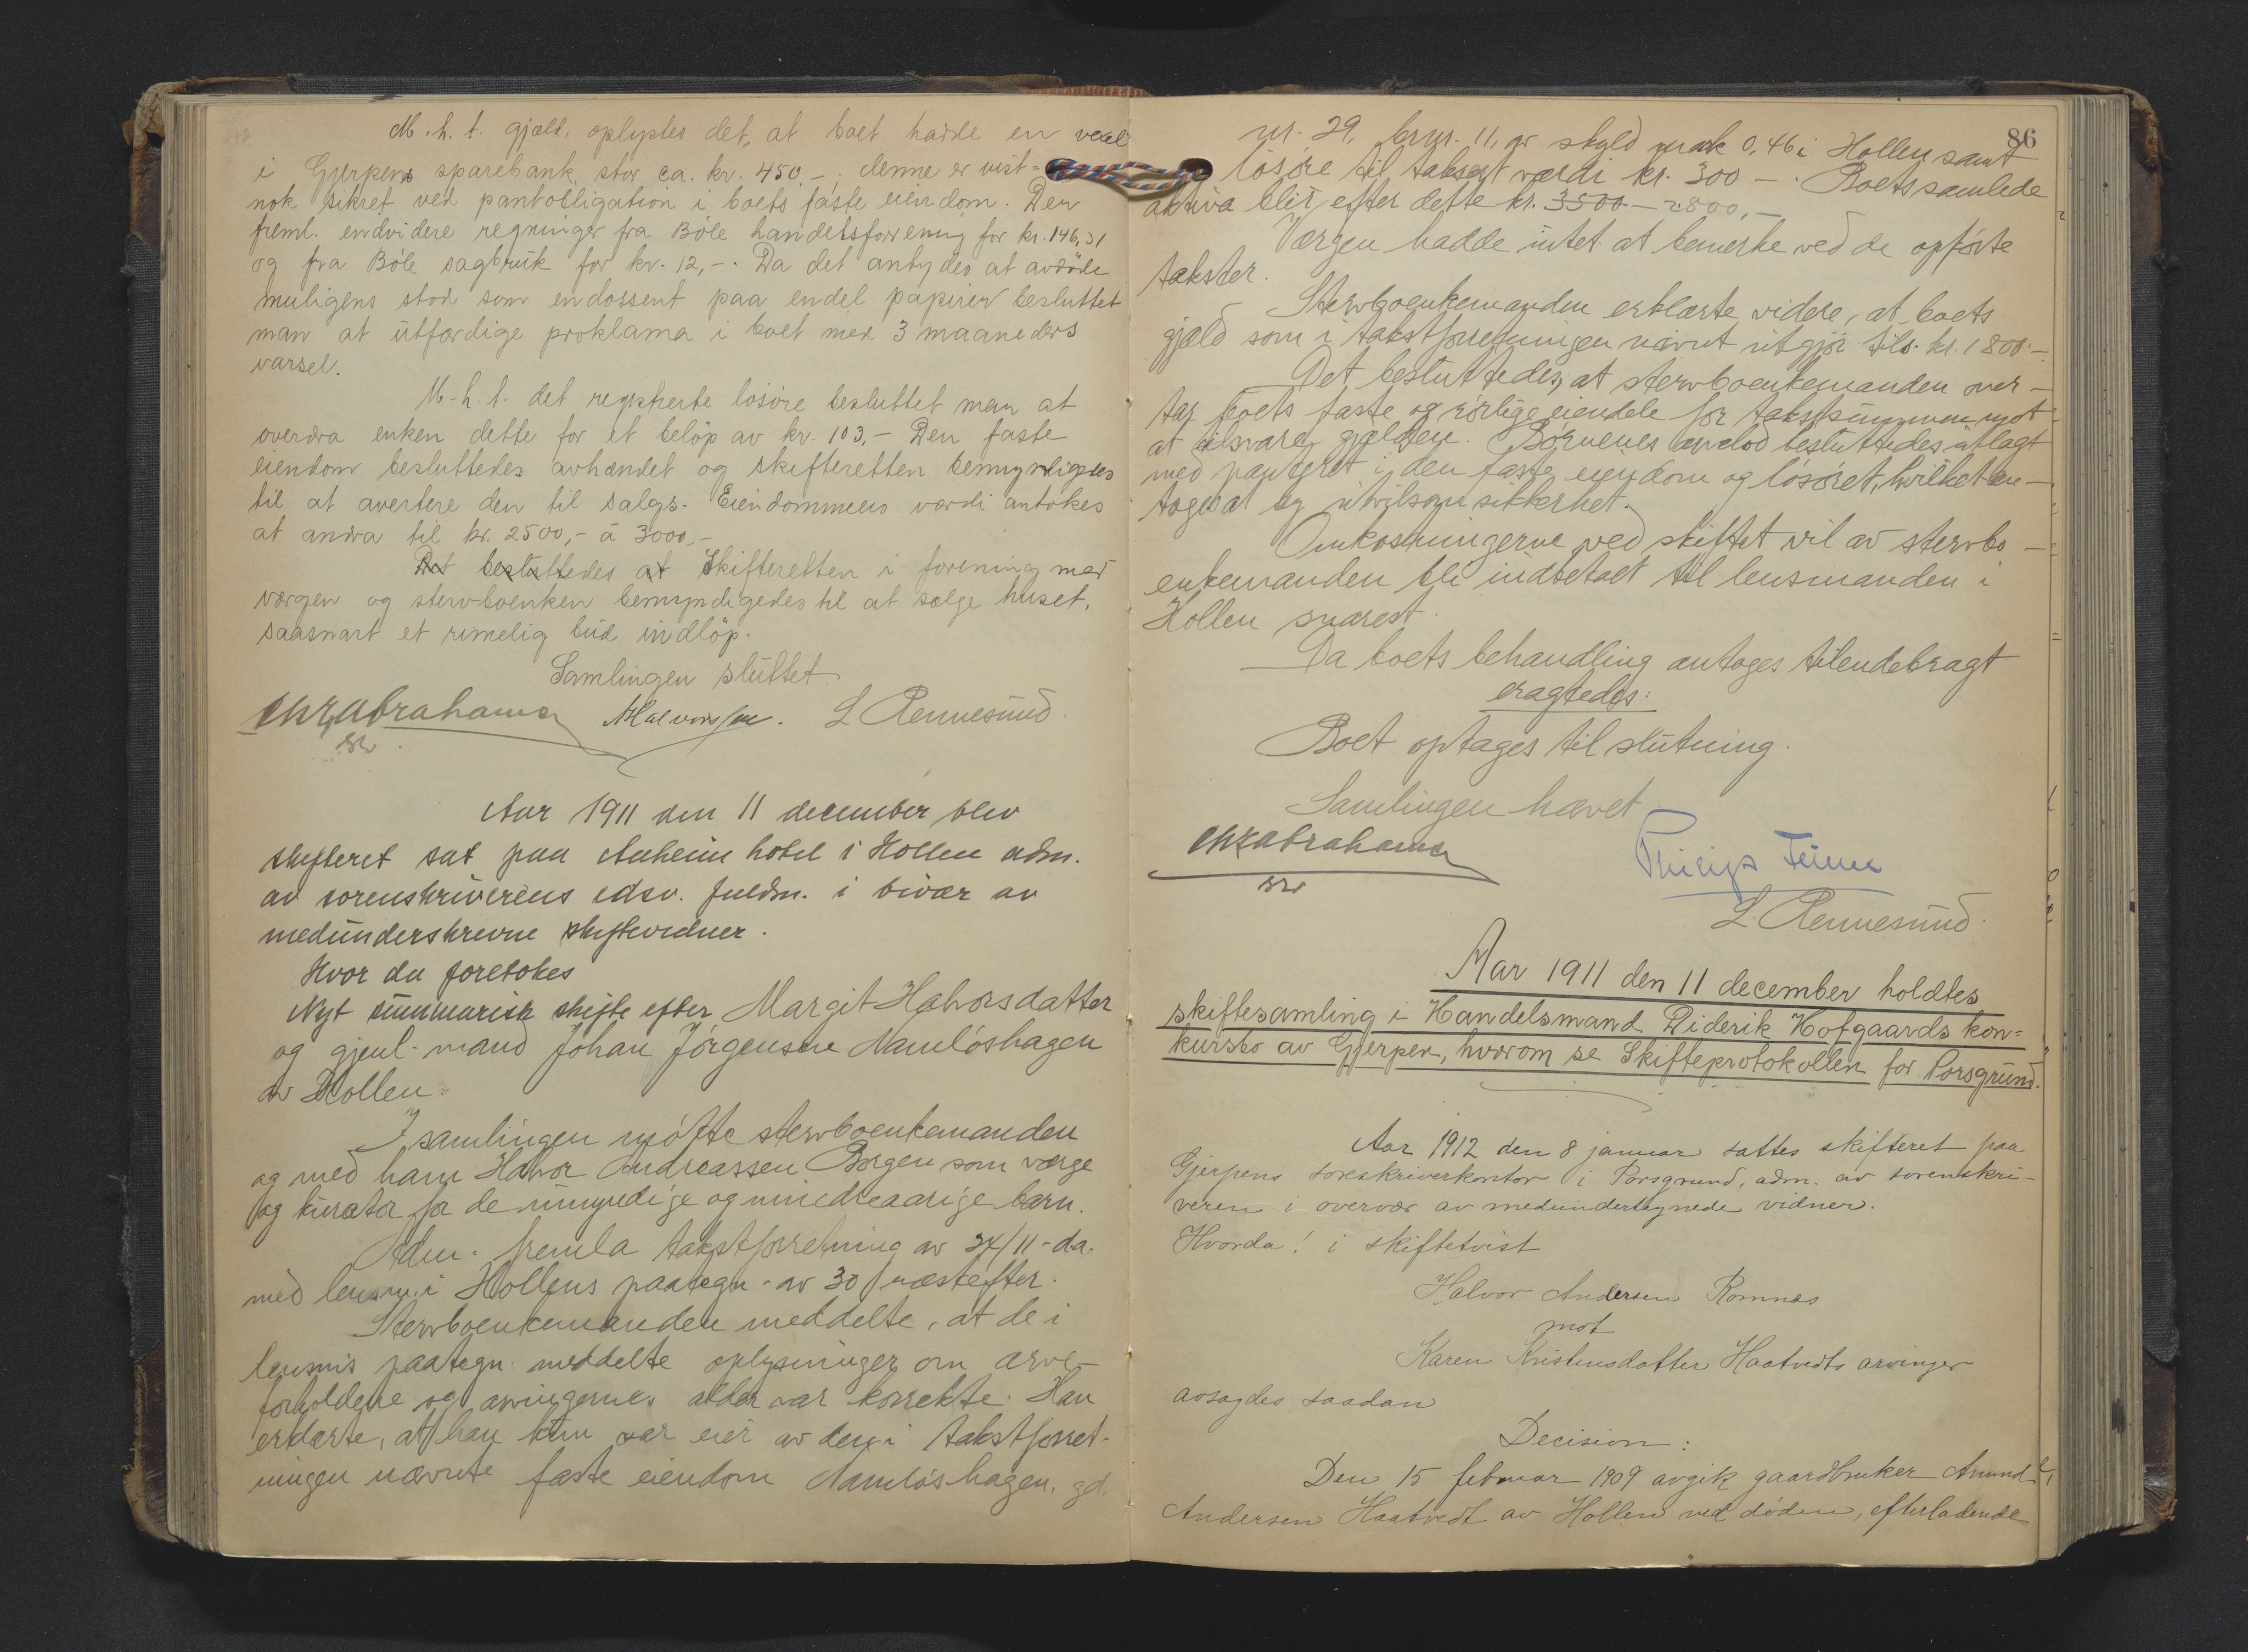 M.h.t. gjæld, oplystes det, at boet hadde en vexel
i Gjerpens sparebank, stor ca. kr. 450,-, denne er vist-
nok sikret ved pantobligation i boets faste eiendom. Der
freml. endvidere regninger fra Böle handelsforening for kr. 146,31
og fra Böle sagbruk for kr. 12,-. Da det antydes at avdöde
muligens stod som endossent paa endel papirer besluttet
man at utfærdige proklama i boet med 3 maaneders
varsel.
M.h.t. det registrerte lösöre besluttet man at
overdra enken dette for et belöp av kr. 103,- Den faste
eiendom besluttedes avhændet og skifteretten bemyndigedes
til at avertere den til salgs. Eiendommens værdi antokes
at andra til kr. 2500,- á 3000,-
Det besluttedes at Skifteretten i forening med
værgen og stervboenken bemyndigedes til at sælge huset,
saasnart et rimelig bud indlöp.
Samlingen sluttet
Chr Abrahams NHalvorsen. L Rennesund.
Aar 1911 den 11 december blev
skifteret sat paa Aaheim hotel i Hollen adm.
av sorenskriverens edsv. fuldm. i bivær av
medunderskrevne skiftevidner.
Hvor da foretokes
Nyt summarisk skifte efter Margit Halvorsdatter
og gjenl. mand Johan Jörgensen Namlöshagen
av Hollen.
I samlingen mötte stervboenkemanden
og med ham Halvor Andreassen Borgen som værge
og kurator for de umyndige og mindreaarige barn.
Adm. freml. takstforretning av 24/11 d.a.
med lensm. i Hollens paategn. av 30 næstefter.
Stervboenkemanden meddelte, at de i
lensm's paategn. meddelte oplysninger om arve-
forholdene og arvingernes alder var korrekte. Han
erklærte, at han kun var eier av den i takstforret-
ningen nævnte faste eiendom Namlöshagen, gd.
86
nr. 29, brnr. 11, av skyld mark 0,46 i Hollen samt
lösöre til taksert værdi kr. 300 -. Boets samlede
aktiva blir efter dette kr. 3500 - 2800,-
Værgen hadde intet at bemerke ved de opförte
takster.
Stervboenkemanden erklærte videre, at boets
gjæld som i takstforretningen nævnt utgjör tils. kr. 1800.-
Det besluttedes, at stervboenkemanden over-
tar boets faste og rörlige eiendele for takstsummen mot
at tilsvare gjælden. Börnenes arvelod besluttedes utlagt
med panteret i den faste eiendom og lösöret, hvilket an-
toges at by utvilsom sikkerhet.
Omkostningerne ved skiftet vil av stervbo-
enkemanden bli indbetalt til lensmanden i
Hollen snarest.
Da boets behandling antoges tilendebragt
eragtedes:
Boet optages til slutning.
Samlingen hævet
Chr Abrahams
L. Rennesund.
Aar 1911 den 11 december holdtes
skiftesamling i Handelsmand Diderik Hofgaards kon-
kursbo av Gjerpen, hvorom se Skifteprotokollen for Porsgrund.
Aar 1912 den 8 januar sattes skifteret paa
Gjerpens soreskriverkontor i Porsgrund, adm. av sorenskri-
veren i overvær av medundertegnede vidner.
Hvorda! i skiftetvist
Halvor Andersen Romnæs
mot
Karen Kristensdatter Haatvedts arvinger
avsagdes saadan
Decision:
Den 15 februar 1909 avgik gaardbruker Amund
Andersen Haatvedt av Hollen ved döden, efterladende